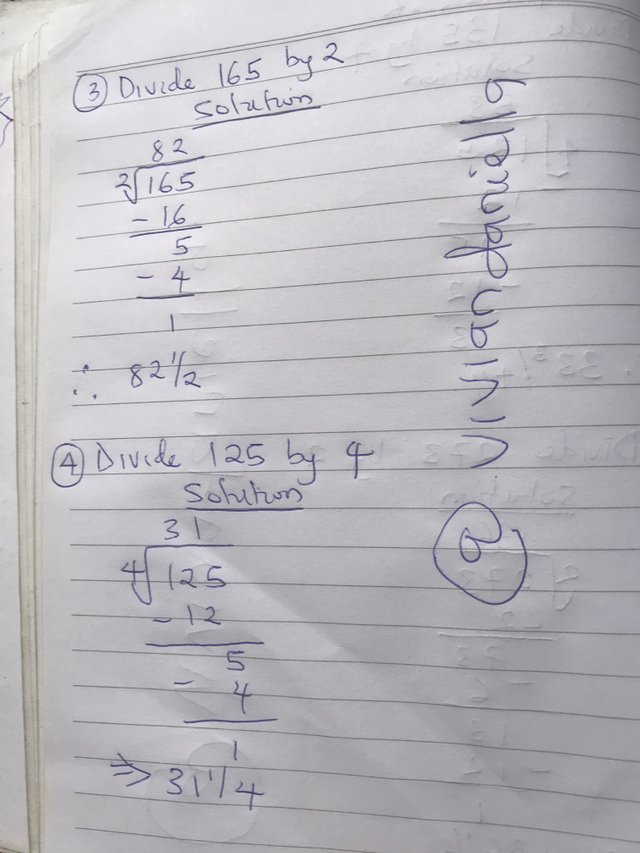 ③ Divide 165 by 2
Solution
82
2√165
- 16
5
- 4
1
∴ 82 1/2
④ Divide 125 by 4
Solution
31
4√125
- 12
5
- 4
1
⇒ 31 1/4
@ viviandaniella